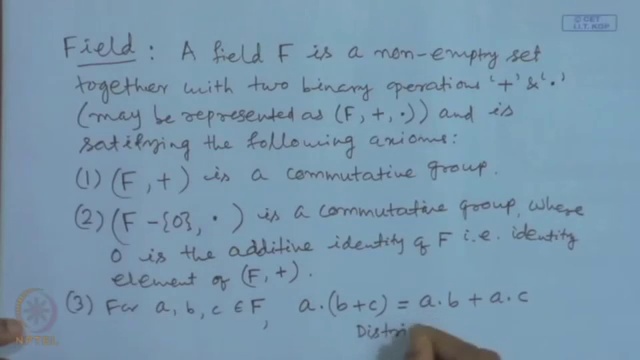 © CET
I.I.T. KGP
Field : A field F is a non-empty set
together with two binary operations '+' & '·'
(may be represented as (F, +, ·)) and is
satisfying the following axioms:
(1) (F, +) is a commutative group.
(2) (F - {0}, ·) is a commutative group, where
0 is the additive identity of F i.e. identity
element of (F, +).
(3) For a, b, c ∈ F, a·(b+c) = a·b + a·c
Distri
NPTEL